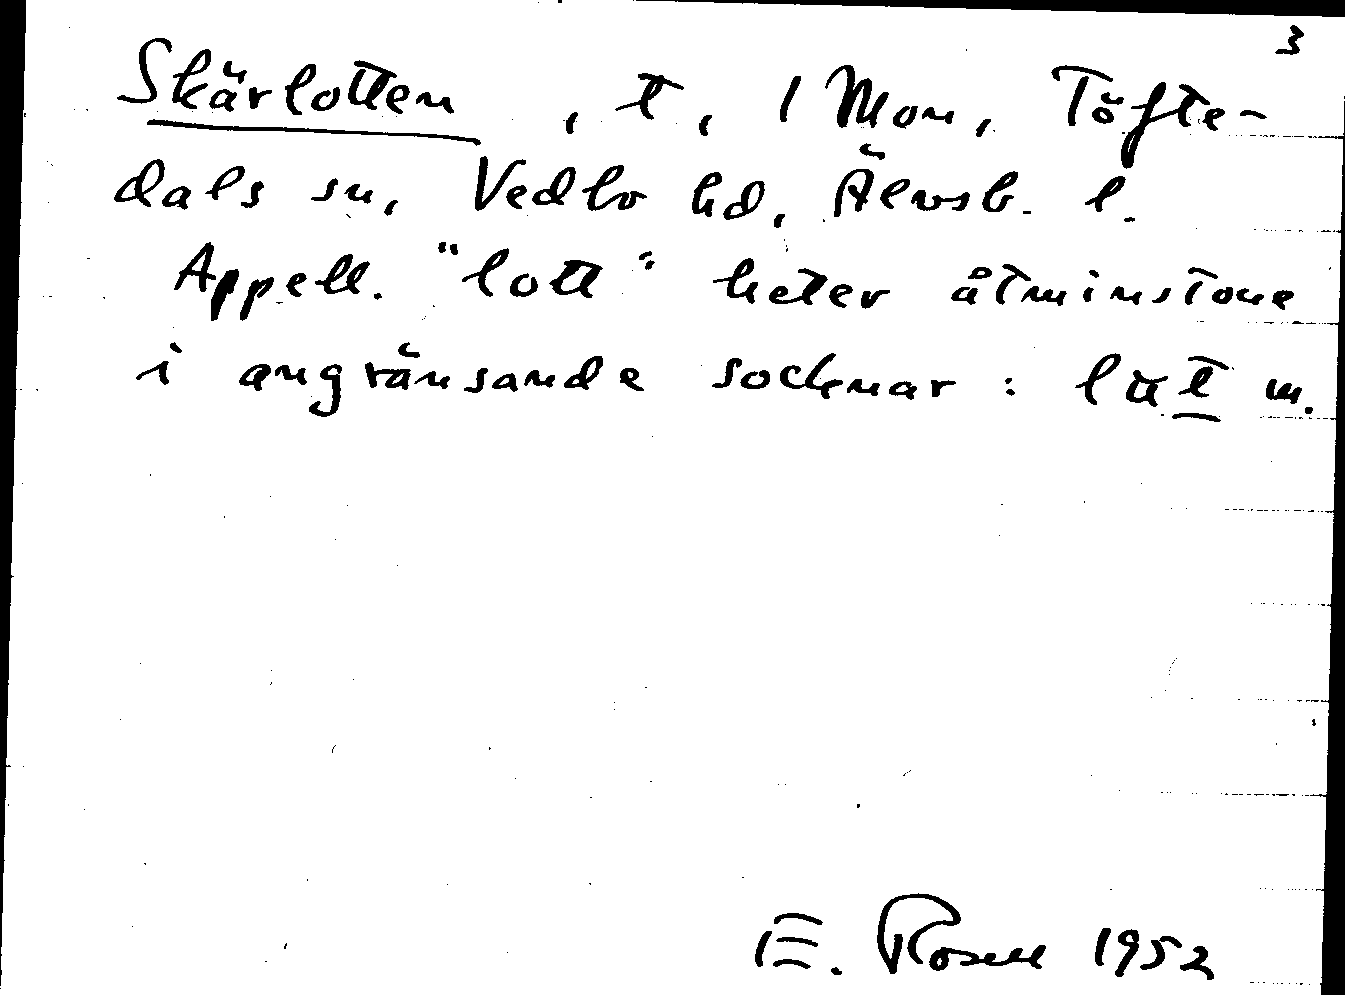 3
Skärlotten, t, 1 Mon, Töfte-
dals sn, Vedbo hd, Älvsb. l.
Appell. "lott" heter åtminstone
i angränsande socknar: lǝt m.
E. Rosell 1952